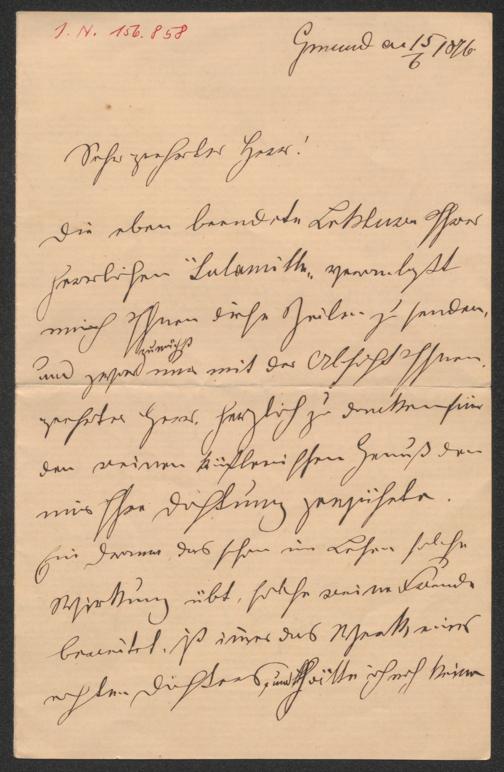 J. N. 156.858
Gmund am 15/6 1876
Sehr geehrter Herr!
Die eben beendete Lektüre Ihrer
herrlichen „Sulamith“ veranlaßt
mich Ihnen diese Zeilen zu senden,
und zwar zunächst nur mit der Absicht Ihnen,
geehrter Herr, herzlich zu danken für
den reinen künstlerischen Genuß den
mir Ihre Dichtung gewährte.
Ein Drama, das schon im Lesen solche
Wirkung übt, solche reine Freude
bereitet, ist immer das Werk eines
echten Dichters, und hätte ich noch keine